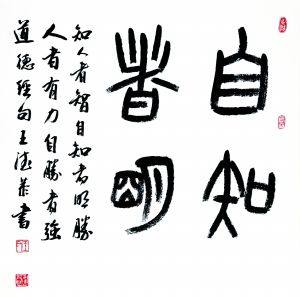 自知
者明
知人者智自知者明勝
人者有力自勝者強
道德經句王德恭書